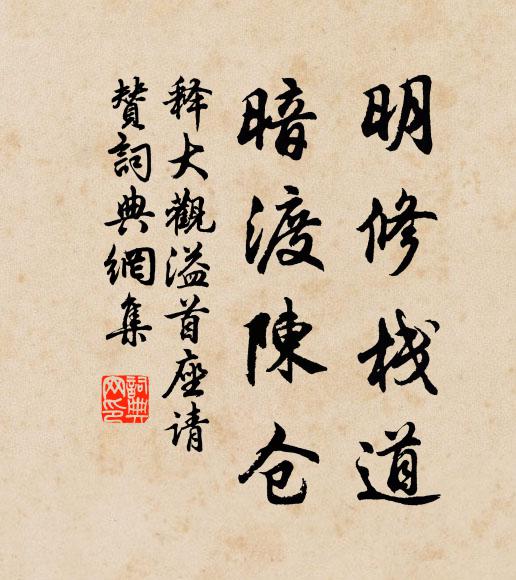 明修栈道
暗渡陳仓
释大觀溢首座请
赞詞典網集
詞典
网印